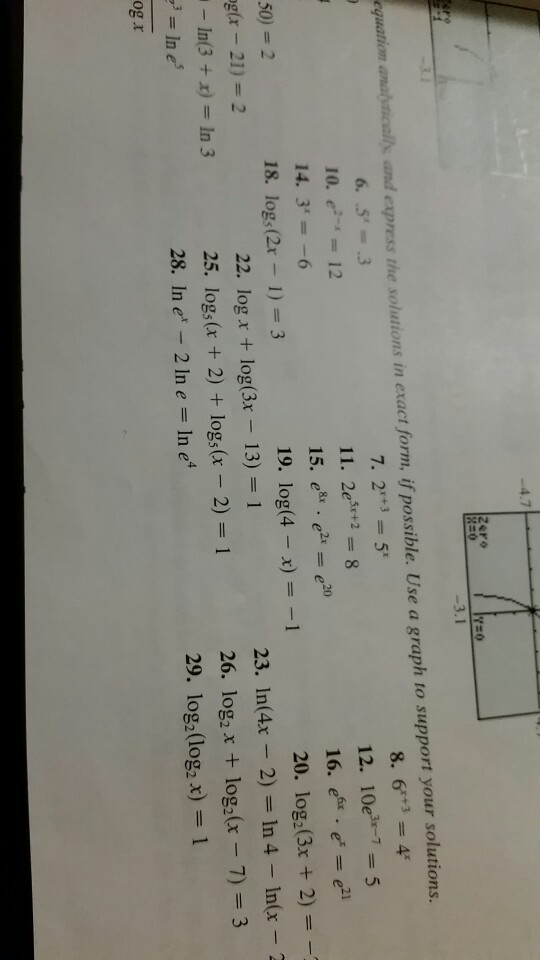 Zero
-3.1
-4.7
Zero
X=0 Y=0
-3.1
equation analytically, and express the solutions in exact form, if possible. Use a graph to support your solutions.
6. .5ˣ = .3 7. 2ˣ⁺³ = 5ˣ 8. 6ˣ⁺³ = 4ˣ
10. e²⁻ˣ = 12 11. 2e⁵ˣ⁺² = 8 12. 10e³ˣ⁻⁷ = 5
14. 3ˣ = −6 15. e⁸ˣ · e²ˣ = e²⁰ 16. e⁶ˣ · eˣ = e²¹
50) = 2 18. log₅(2x − 1) = 3 19. log(4 − x) = −1 20. log₂(3x + 2) = −
og(x − 21) = 2 22. log x + log(3x − 13) = 1 23. ln(4x − 2) = ln 4 − ln(x − 2
− ln(3 + x) = ln 3 25. log₅(x + 2) + log₅(x − 2) = 1 26. log₂ x + log₂(x − 7) = 3
³ = ln e⁵ 28. ln eˣ − 2 ln e = ln e⁴ 29. log₂(log₂ x) = 1
og x